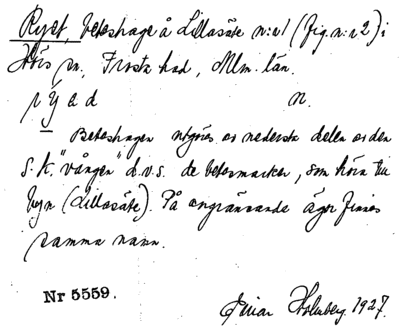 Ryet, beteshage å Lillasäte n:o 1 (fig. n:o 2) i
Hörs sn, Frosta had, Mlm. län.
n.
Beteshagen utgöres av nedersta delen av den
s.k. "vången" d.v.s. de betesmarker, som höra till
byn (Lillasäte). På angränsande ägor finnes
samma namn.
Nr 5559.
Einar Holmberg. 1927.